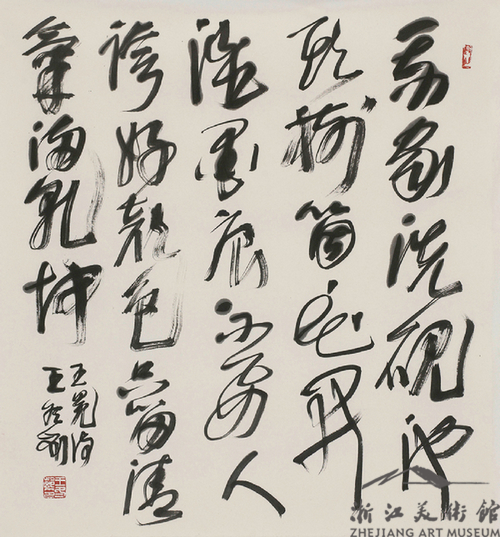 吾家洗硯池
頭樹箇花開
淡墨痕不要人
誇好顏色只留清
氣滿乾坤
王冕詩
王冬齡
浙江美術館
ZHEJIANG ART MUSEUM